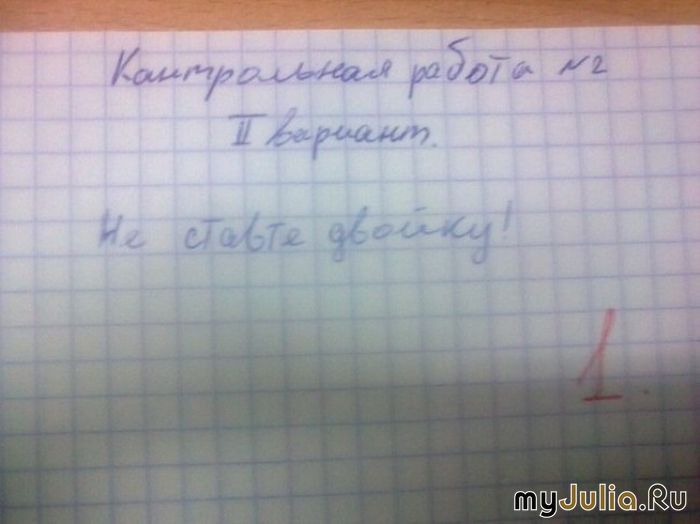 Кантрольная работа №2
II вариант.
Не ставте двойку!
1.
myJulia.Ru